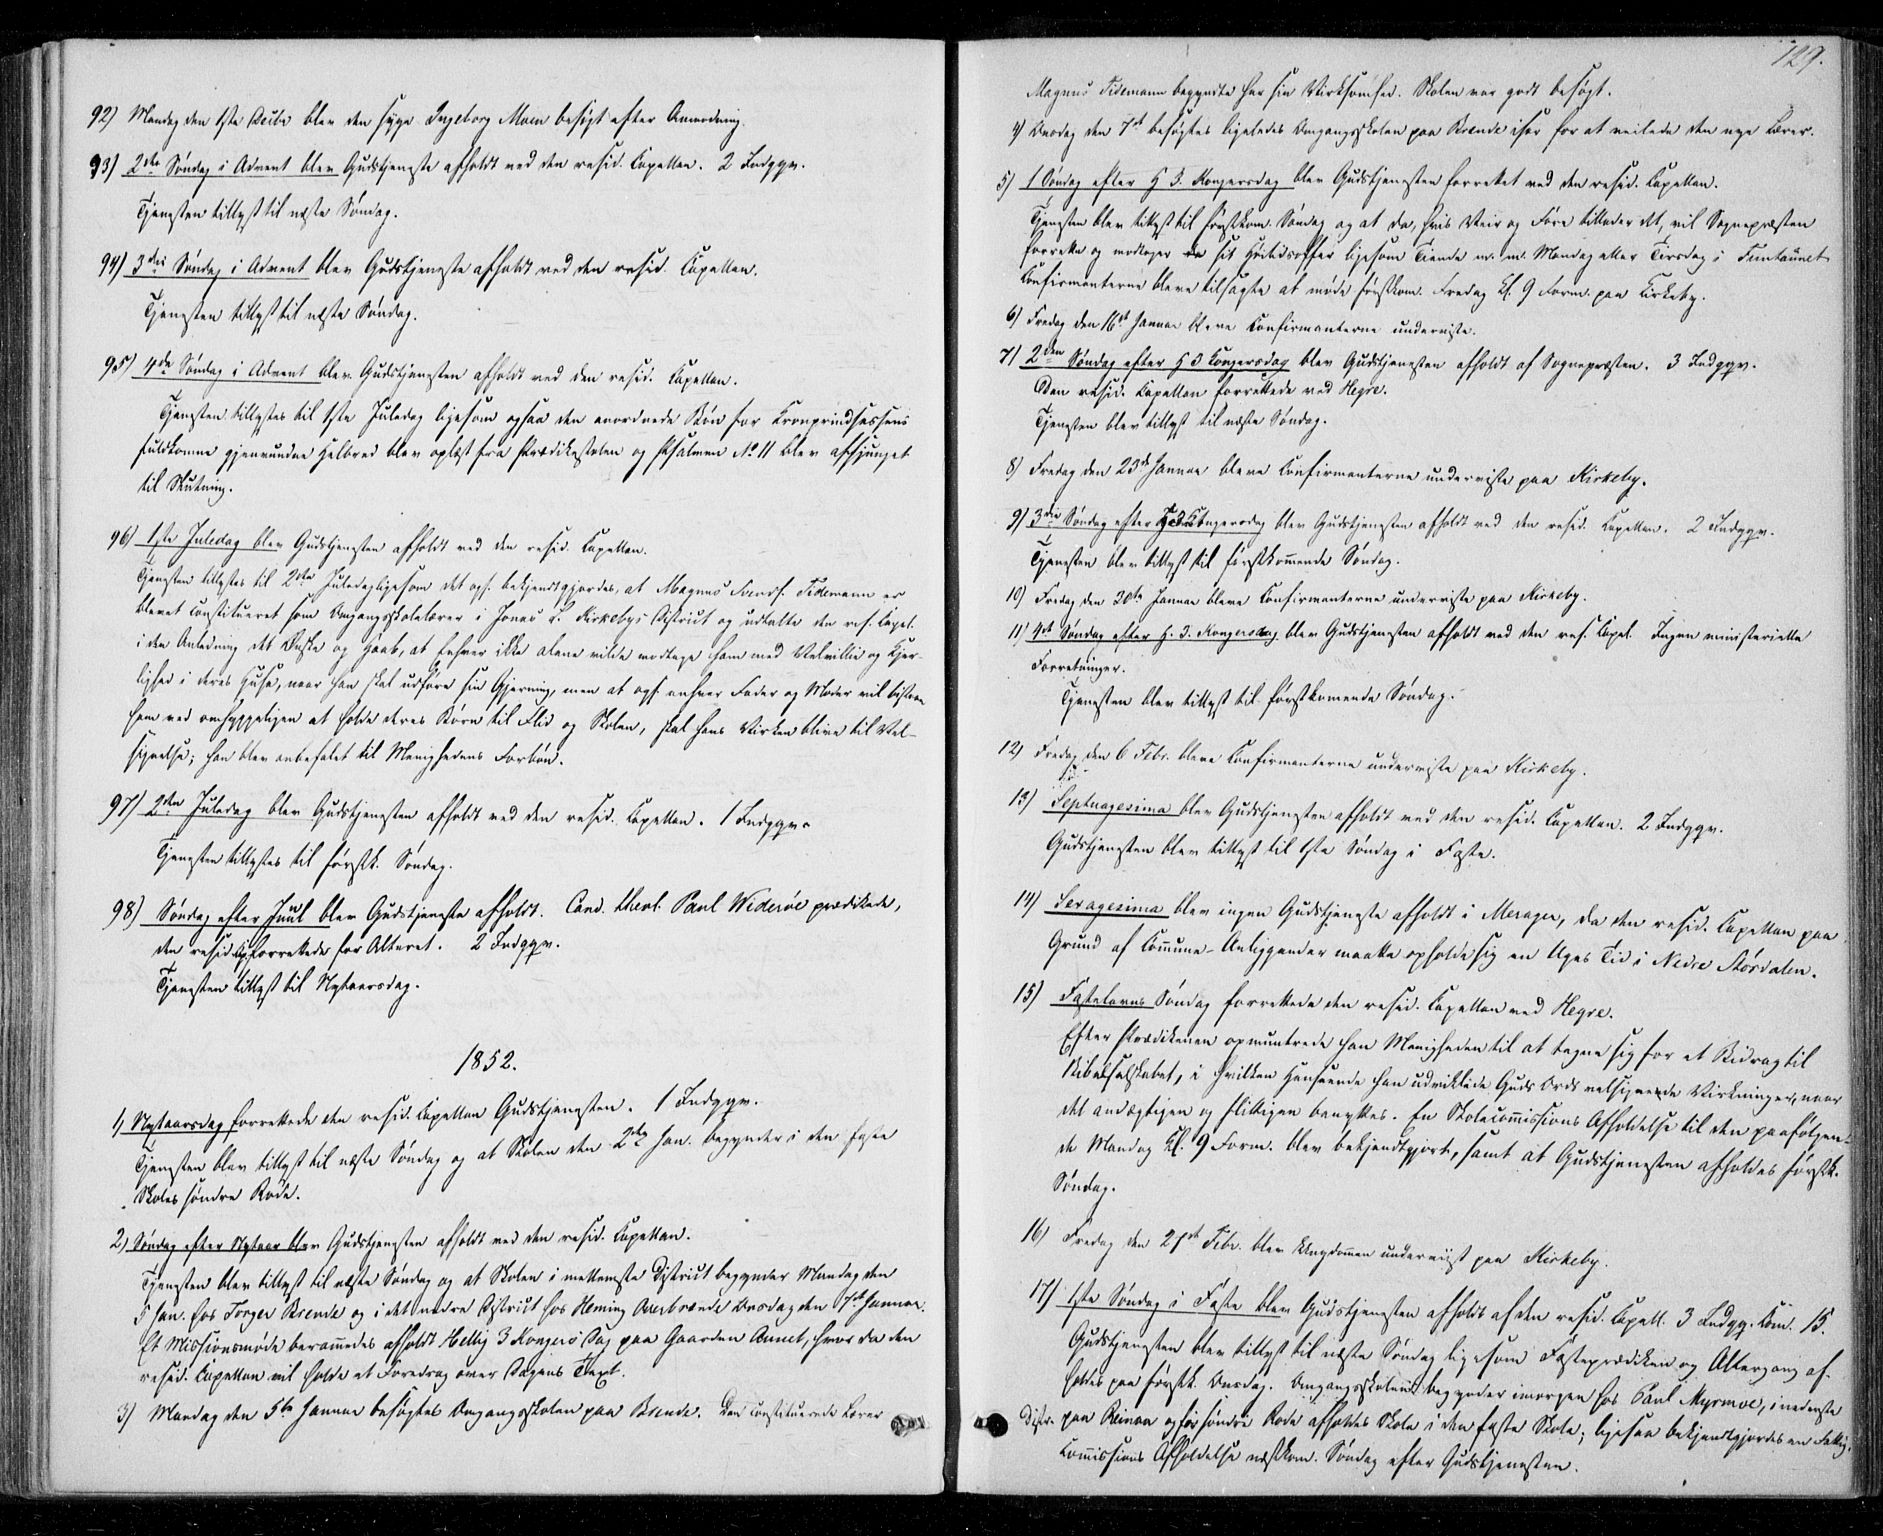 92) Mandag den 1ste Decbr blev den syge Ingeborg Moen besøgt efter Anmodning.
93) 2den Søndag i Advent blev Gudstjeneste afholdt ved den resid. Capellan. 2 Indggv.
Tjenesten tillyst til næste Søndag.
94) 3die Søndag i Advent blev Gudstjeneste afholdt ved den resid. Capellan.
Tjenesten tillyst til næste Søndag.
95) 4de Søndag i Advent blev Gudstjenesten afholdt ved den resid. Capellan.
Tjenesten tillystes til 1ste Juledag ligesom ogsaa den anordnede Bøn for Kronprindsessens
fuldkomne gjenvundne Helbred blev oplæst fra Prædikestolen og Psalmen No 11 blev afsjunget
til Slutning.
96) 1ste Juledag blev Gudstjenesten afholdt ved den resid. Capellan.
Tjenesten tillystes til 2den Juledag ligesom det ogs. bekjendtgjordes, at Magnus Svends. Tidemann er
blevet constitueret som Omgangsskolelærer i Jonas L. Kirkebys District og udtalte den res. Capel.
i den Anledning det Ønske og Haab, at Enhver ikke alene vilde modtage ham med Velvillie og Kjær-
lighed i deres Huse, naar han skal udføre sin Gjerning, men at ogs. enhver Fader og Moder vil bistaae
ham ved omhyggeligen at holde deres Børn til Flid og Skolen, skal hans Virken blive til Vel-
signelse; han blev anbefalet til Menighedens Forbøn.
97) 2den Juledag blev Gudstjenesten afholdt ved den resid. Capellan. 1 Indggv.
Tjenesten tillystes til førstk. Søndag.
98) Søndag efter Juul blev Gudstjeneste afholdt. Cand. theol. Paul Widerøe prædikede,
den resid. Cp. forrettede for Alteret. 2 Indggv.
Tjenesten tillyst til Nytaarsdag.
1852.
1) Nytaarsdag forrettede den resid. Capellan Gudstjenesten. 1 Indggv.
Tjenesten blev tillyst til næste Søndag og at Skolen den 2den Jan. begynder i den faste
Skoles søndre Rode.
2) Søndag efter Nytaar blev Gudstjenesten afholdt ved den resid. Capellan.
Tjenesten blev tillyst til næste Søndag og at Skolen i mellemste District begynder Mandag den
5 Jan. hos Torger Brende og i det nedre District hos Heming Overbrende Onsdag den 7de Januar.
Et Missionsmøde berammedes afholdt Hellig 3 Kongers Dag paa Gaarden Annet, hvor da den
resid. Capellan vil holde et Foredrag over Dagens Text.
3) Mandag den 5te Januar besøgtes Omgangsskolen paa Brende. Den constituerede Lærer
129.
Magnus Tidemann begyndte her sin Virksomhed. Skolen var godt besøgt.
4) Onsdag den 7de besøgtes ligeledes Omgangsskolen paa Brende især for at veilede den nye Lærer.
5) 1 Søndag efter H 3. Kongersdag blev Gudstjenesten forrettet ved den resid. Capellan.
Tjenesten blev tillyst til førstkom. Søndag og at da, hvis Veir og Føre tillader det, vil Sognepræsten
forrette og modtager da sit Høitidsoffer ligesom Tiende m. m. Mandag eller Tirsdag i Funtaunet.
Confirmanterne bleve tilsagte at møde førstkom. Fredag Kl. 9 Form. paa Kirkeby.
6) Fredag den 16de Januar bleve Confirmanterne underviste.
7) 2den Søndag efter H 3 Kongersdag blev Gudstjenesten afholdt af Sognepræsten. 3 Indggv.
Den resid. Capellan forrettede ved Hegre.
Tjenesten blev tillyst til næste Søndag.
8) Fredag den 23de Januar bleve Confirmanterne underviste paa Kirkeby.
9) 3die Søndag efter H. 3 Kongersdag blev Gudstjenesten afholdt ved den resid. Capellan. 2 Indggv.
Tjenesten blev tillyst til førstkommende Søndag.
10) Fredag den 30te Januar bleve Confirmanterne underviste paa Kirkeby.
11) 4de Søndag efter H. 3. Kongersdag blev Gudstjenesten afholdt ved den res. Capel. Ingen ministerielle
Forretninger.
Tjenesten blev tillyst til førstkomende Søndag.
12) Fredag den 6 Febr. bleve Confirmanterne underviste paa Kirkeby.
13) Septuagesima blev Gudstjenesten afholdt ved den resid. Capellan. 2 Indggv.
Gudstjenesten blev tillyst til 1ste Søndag i Faste.
14) Sexagesima blev ingen Gudstjeneste afholdt i Merager, da den resid. Capellan paa
Grund af Commune-Anliggender maatte opholde sig en Uges Tid i Nedre Størdalen.
15) Fastelavns Søndag forrettede den resid. Capellan ved Hegre.
Efter Prædikenen opmuntrede han Menigheden til at tegne sig for et Bidrag til
Bibelselskabet, i hvilken Henseende han udviklede Guds Ords velsignede Virkninger, naar
det andægtigen og flittigen benyttes. En Skolecommissions Afholdelse til den paafølgen-
de Mandag Kl. 9 Form. blev bekjendtgjort, samt at Gudstjenesten afholdes førstk.
Søndag.
16) Fredag den 27de Febr. blev Ungdommen underviist paa Kirkeby.
17) 1ste Søndag i Faste blev Gudstjenesten afholdt af den resid. Capell. 3 Indgg. Com. 15.
Gudstjenesten blev tillyst til næste Søndag ligesom Fasteprædiken og Altergang af-
holdes paa førstk. Onsdag. Omgangsskolen begynder imorgen hos Paul Myrmoe, i nederste
Distr. paa Reinaa og for søndre Rode afholdes Skole i den faste Skole; ligesaa bekjendtgjordes en Fattig-
Commissions Afholdelse næstkom. Søndag efter Gudstjenesten.